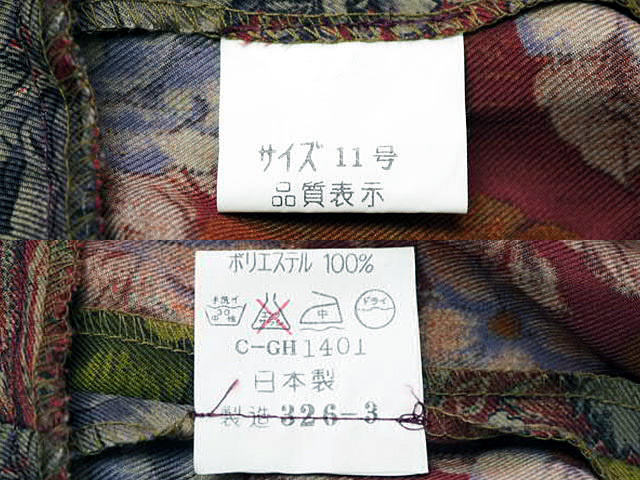 サイズ 11号
品質表示
ポリエステル 100%
手洗イ 30 中性 エンソ サラシ 中 ドライ
C-GH1401
日本製
製造 326-3